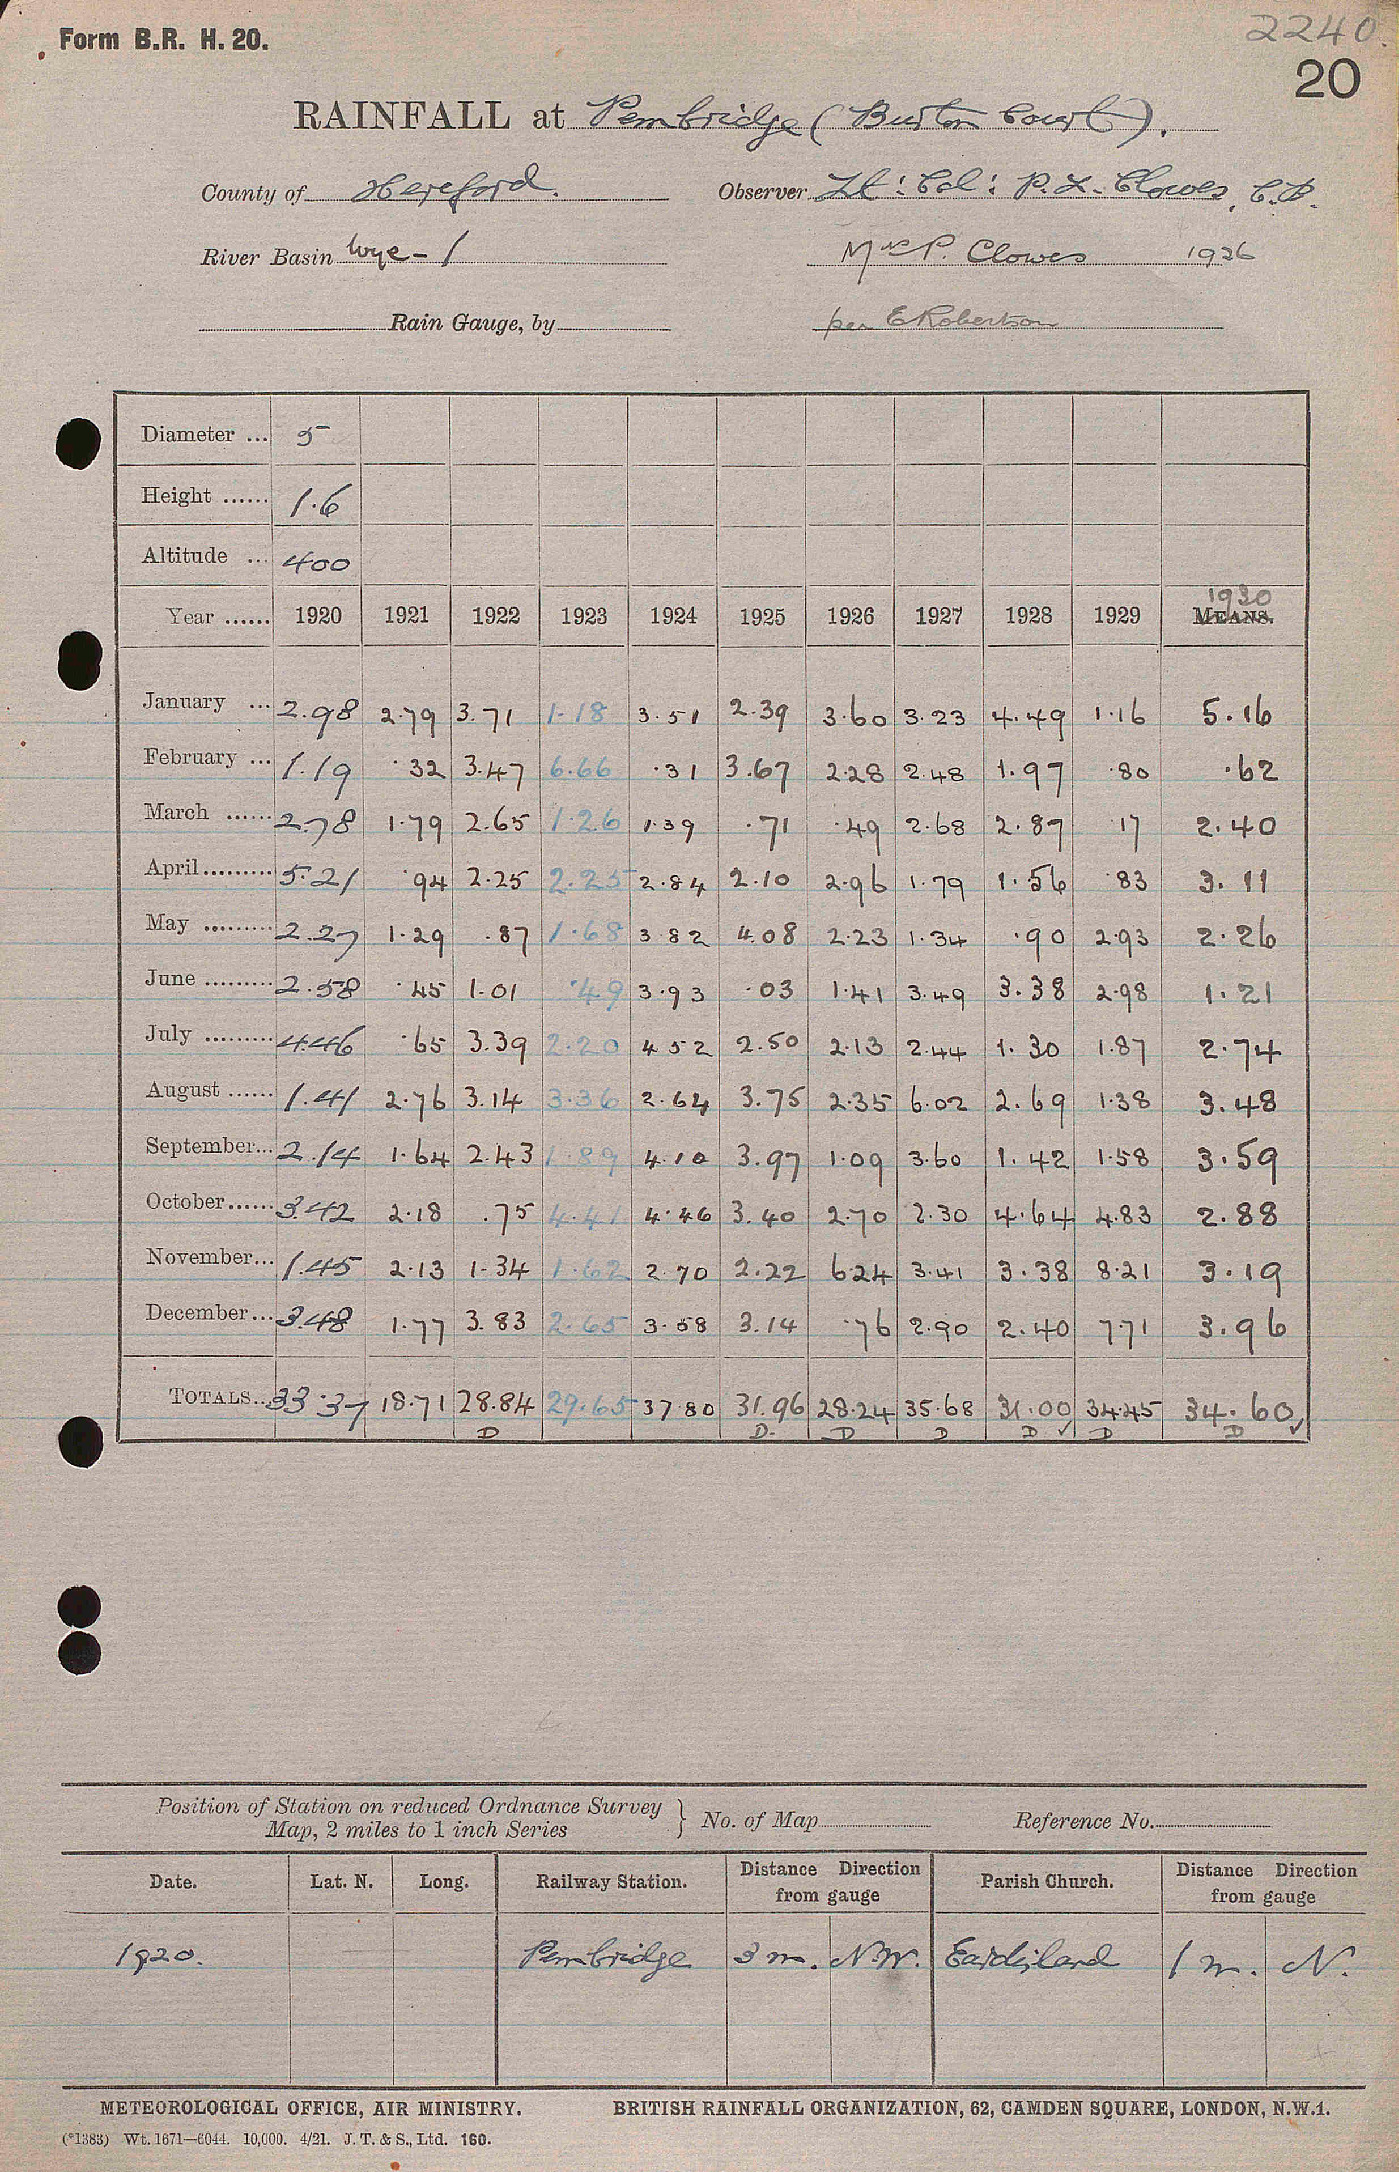 Form B.R. H. 20.
2240
20
RAINFALL at Pembridge (Burton Court).
County of Hereford. Observer Lt: Col: P. L. Clowes, C.B.
River Basin Wye - 1 Mrs P. Clowes 1926
Rain Gauge, by per E Robertson
Diameter ... 5
Height ...... 1.6
Altitude ... 400
1930
Year ...... 1920 1921 1922 1923 1924 1925 1926 1927 1928 1929 MEANS.
January ... 2.98 2.79 3.71 1.18 3.51 2.39 3.60 3.23 4.49 1.16 5.16
February ... 1.19 .32 3.47 6.66 .31 3.67 2.28 2.48 1.97 .80 .62
March ...... 2.78 1.79 2.65 1.26 1.39 .71 .49 2.68 2.87 17 2.40
April ......... 5.21 .94 2.25 2.25 2.84 2.10 2.96 1.79 1.56 .83 3.11
May ......... 2.27 1.29 .87 1.68 3.82 4.08 2.23 1.34 .90 2.93 2.26
June ......... 2.58 .45 1.01 .49 3.93 .03 1.41 3.49 3.38 2.98 1.21
July ......... 4.46 .65 3.39 2.20 4.52 2.50 2.13 2.44 1.30 1.87 2.74
August ...... 1.41 2.76 3.14 3.36 2.64 3.75 2.35 6.02 2.69 1.38 3.48
September... 2.14 1.64 2.43 1.89 4.10 3.97 1.09 3.60 1.42 1.58 3.59
October...... 3.42 2.18 .75 4.41 4.46 3.40 2.70 2.30 4.64 4.83 2.88
November... 1.45 2.13 1.34 1.62 2.70 2.22 6.24 3.41 3.38 8.21 3.19
December... 3.48 1.77 3.83 2.65 3.58 3.14 .76 2.90 2.40 7.71 3.96
TOTALS... 33.37 18.71 28.84 29.65 37.80 31.96 28.24 35.68 31.00 34.45 34.60 ✓
D D. D D D ✓ D D
Position of Station on reduced Ordnance Survey
Map, 2 miles to 1 inch Series } No. of Map Reference No.
Date. Lat. N. Long. Railway Station. Distance Direction from gauge Parish Church. Distance Direction from gauge
1920. Pembridge 3 m. N.W. Eardisland 1 m. N.
METEOROLOGICAL OFFICE, AIR MINISTRY. BRITISH RAINFALL ORGANIZATION, 62, CAMDEN SQUARE, LONDON, N.W.1.
(*1383) Wt. 1671—6044. 10,000. 4/21. J. T. & S., Ltd. 160.